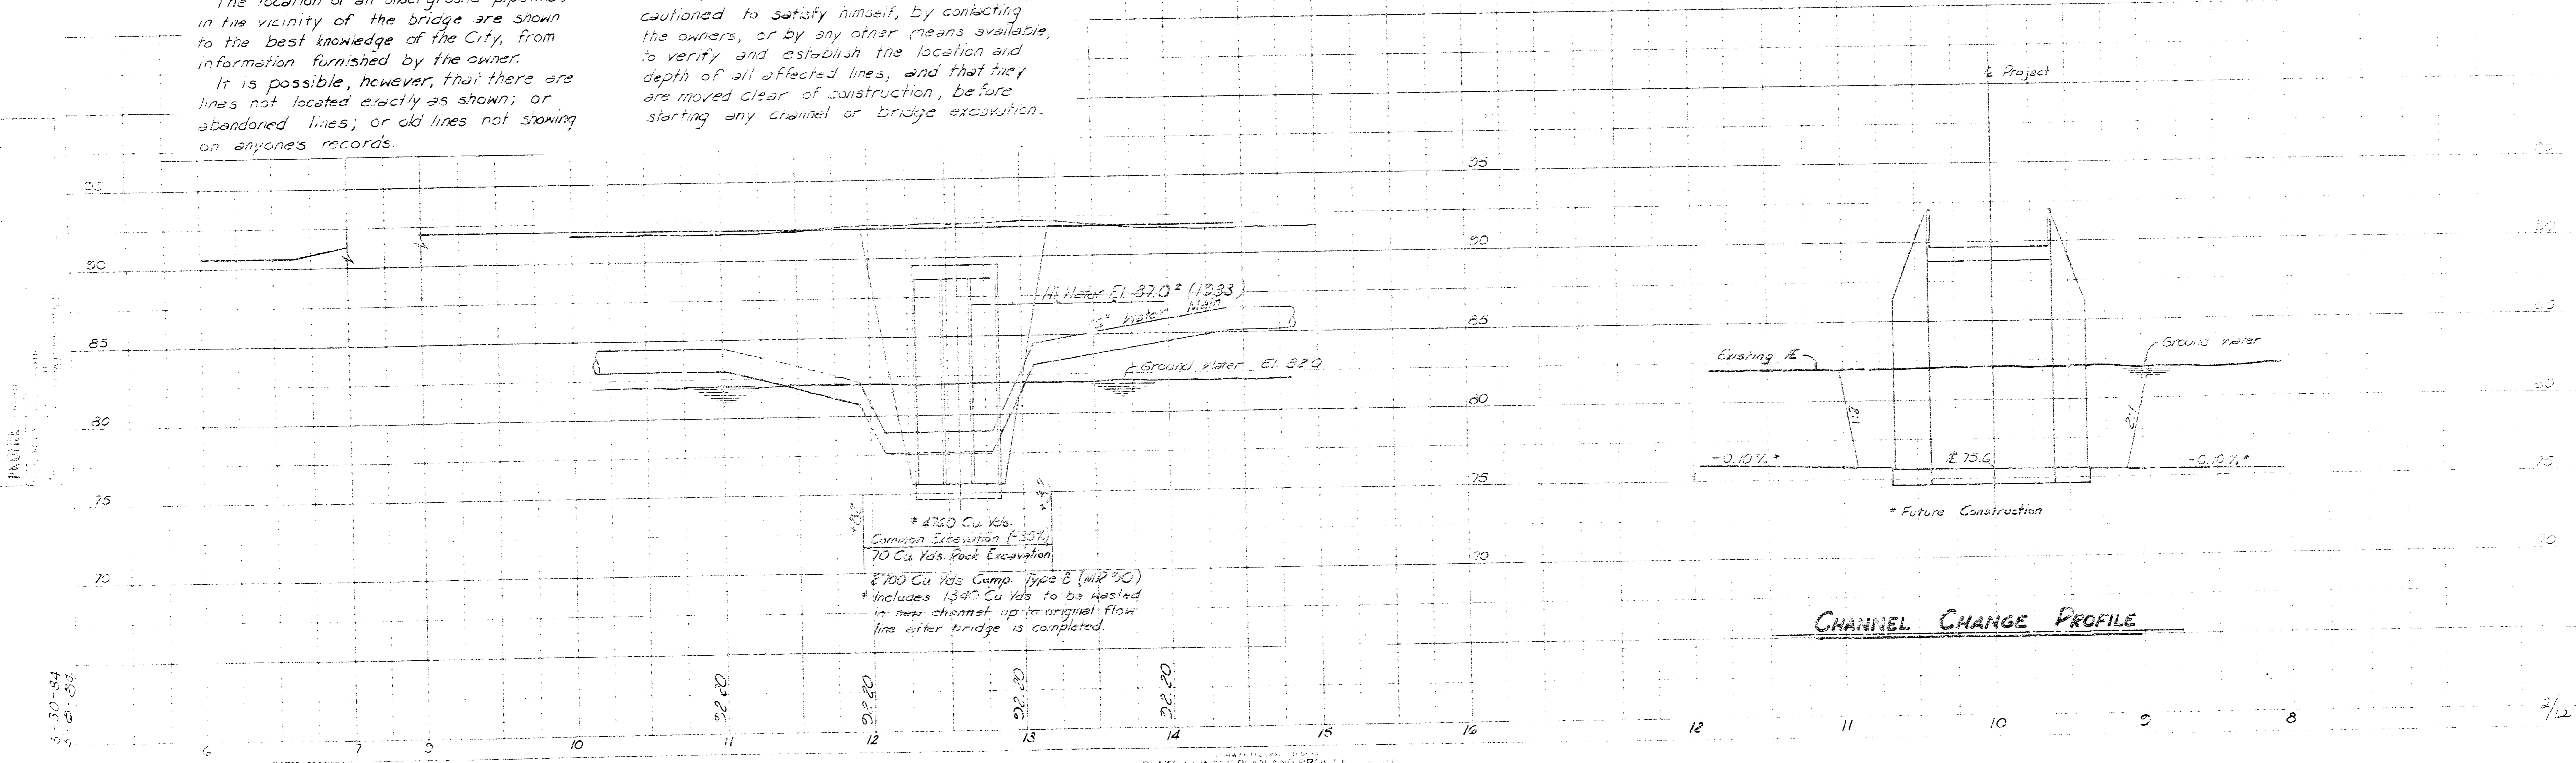 in the vicinity of the bridge are shown
to the best knowledge of the City, from
information furnished by the owner.
It is possible, however, that there are
lines not located exactly as shown; or
abandoned lines; or old lines not showing
on anyone's records.
cautioned to satisfy himself, by contacting
the owners, or by any other means available,
to verify and establish the location and
depth of all affected lines, and that they
are moved clear of construction, before
starting any channel or bridge excavation.
℄ Project
95
95
90
90
85
85
80
80
75
75
70
70
Hi-Water El. 87.0± (1933)
Water Main
Ground Water El. 82.0
Cu. Yds.
Common Excavation (-35%)
70 Cu. Yds. Rock Excavation
Cu. Yds. Comp. Type B
* Includes 1340 Cu. Yds. to be wasted
in new channel up to original flow
line after bridge is completed.
Existing ℄
Ground Water
2:1
2:1
-0.10%*
75.6
-0.10%*
* Future Construction
CHANNEL CHANGE PROFILE
92.20
92.20
92.20
6
7
9
10
11
12
13
14
15
16
12
11
10
9
8
2/12